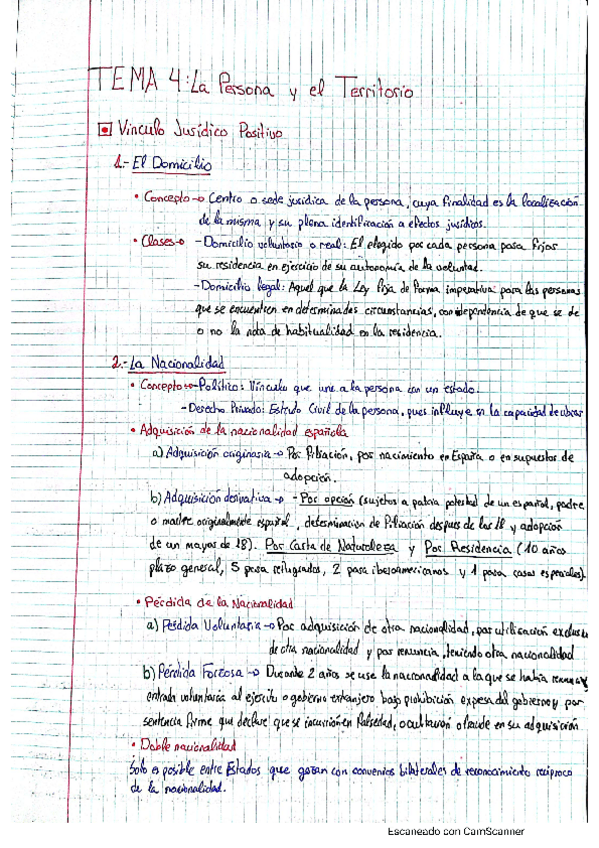 TEMA 4: La Persona y el Territorio
Vinculo Jurídico Positivo
1.- El Domicilio
• Concepto → Centro o sede jurídica de la persona, cuya finalidad es la localización
de la misma y su plena identificación a efectos jurídicos.
• Clases → - Domicilio voluntario o real: El elegido por cada persona para fijar
su residencia en ejercicio de su autonomía de la voluntad.
- Domicilio legal: Aquel que la Ley fija de forma imperativa para las personas
que se encuentren en determinadas circunstancias, con independencia de que se de
o no la nota de habitualidad en la residencia.
2.- La Nacionalidad
• Concepto → - Político: Vinculo que une a la persona con un estado.
- Derecho Privado: Estado Civil de la persona, pues influye en la capacidad de obrar
• Adquisición de la nacionalidad española
a) Adquisición originaria → Por filiación, por nacimiento en España o en supuestos de
adopción.
b) Adquisición derivativa → - Por opción (sujetos a patria potestad de un español, padre
o madre originalmente español, determinacion de filiación despues de los 18 y adopcion
de un mayor de 18). Por Carta de Naturaleza y Por Residencia (10 años
plazo general, 5 para refugiados, 2 para iberoamericanos y 1 para casos especiales).
• Pérdida de la Nacionalidad
a) Pérdida Voluntaria → Por adquisición de otra nacionalidad, por utilización exclusi
de otra nacionalidad y por renuncia, teniendo otra nacionalidad
b) Pérdida Forzosa → Durante 2 años se use la nacionalidad a la que se había
entrada voluntaria al ejercito o gobierno extranjero bajo prohibición expresa del gobierno y por
sentencia firme que declare que se incurrió en falsedad, ocultación o fraude en su adquisición
• Doble nacionalidad
Solo es posible entre Estados que gozan con convenios bilaterales de reconocimiento recíproco
de la nacionalidad.
Escaneado con CamScanner